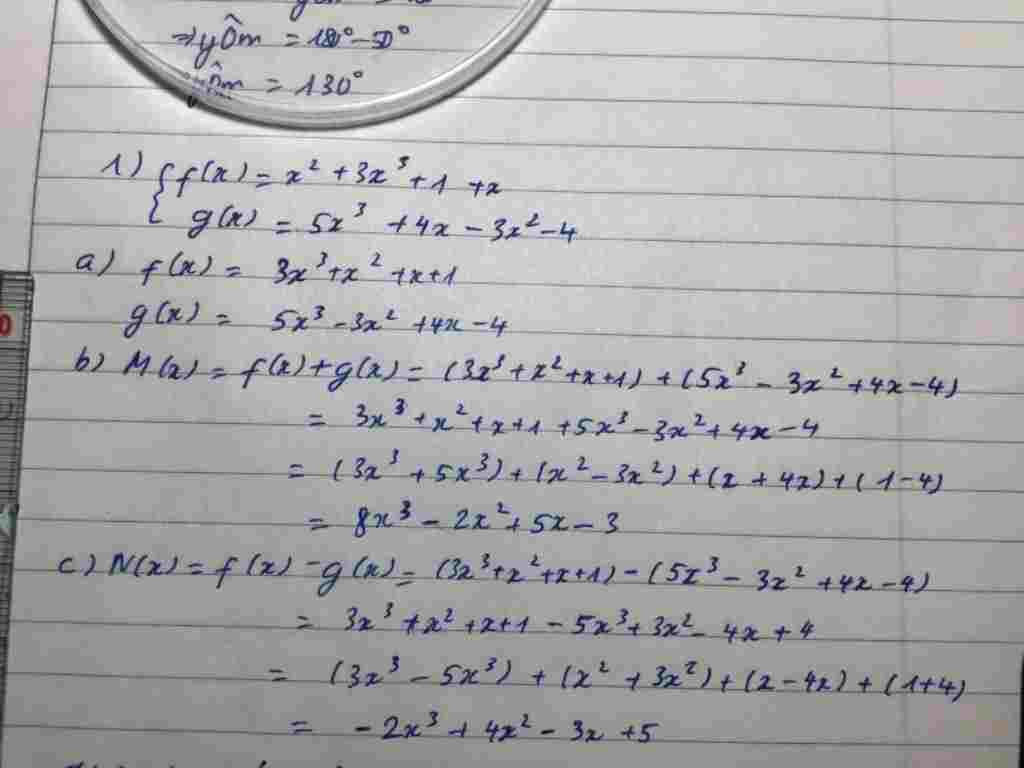 ⇒ yÔm = 180° - 50°
yÔm = 130°
1) { f(x) = x² + 3x³ + 1 + x
g(x) = 5x³ + 4x - 3x² - 4
a) f(x) = 3x³ + x² + x + 1
g(x) = 5x³ - 3x² + 4x - 4
b) M(x) = f(x) + g(x) = (3x³ + x² + x + 1) + (5x³ - 3x² + 4x - 4)
= 3x³ + x² + x + 1 + 5x³ - 3x² + 4x - 4
= (3x³ + 5x³) + (x² - 3x²) + (x + 4x) + (1 - 4)
= 8x³ - 2x² + 5x - 3
c) N(x) = f(x) - g(x) = (3x³ + x² + x + 1) - (5x³ - 3x² + 4x - 4)
= 3x³ + x² + x + 1 - 5x³ + 3x² - 4x + 4
= (3x³ - 5x³) + (x² + 3x²) + (x - 4x) + (1 + 4)
= -2x³ + 4x² - 3x + 5